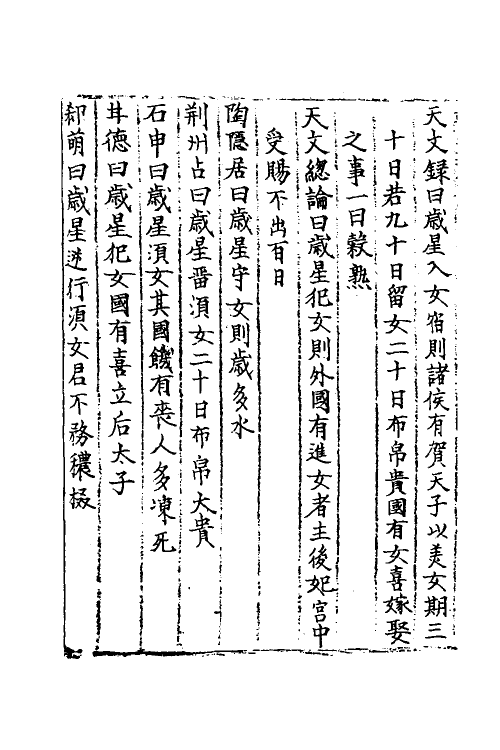 天文録曰歳星入女宿則諸侯有賀天子以美女期三
十日若九十日留女二十日布帛貴國有女喜嫁娶
之事一曰穀熟
天文總論曰歳星犯女則外國有進女者主後妃宫中
受賜不出百日
陶隠居曰歳星守女則歳多水
荆州占曰歳星畱湏女二十日布帛大貴
石申曰歳星湏女其國饑有喪人多凍死
甘德曰歳星犯女國有喜立后太子
郗萌曰歳星逆行湏女君不務穠